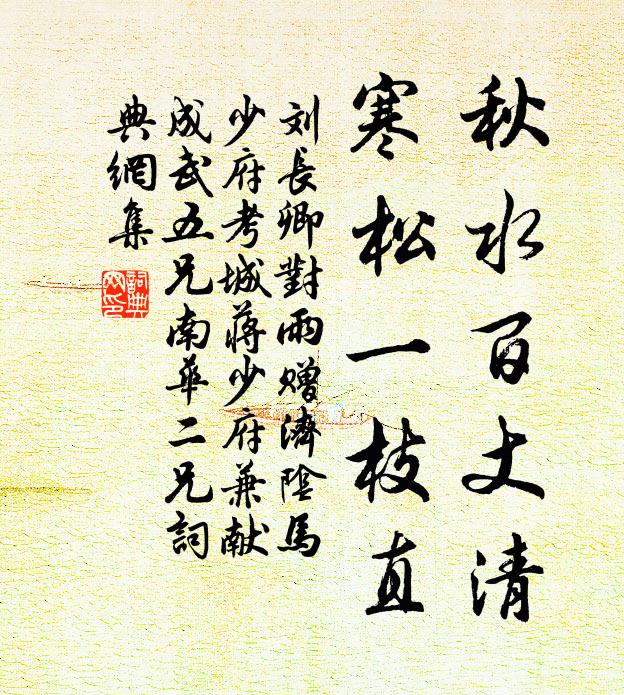 秋水百丈清
寒松一枝直
刘長卿對雨赠濟陰馬
少府考城蔣少府兼献
成武五兄南華二兄詞
典網集
詞典
网印